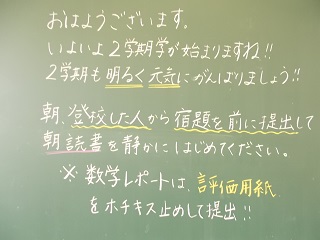 おはようございます。
いよいよ2学期学が始まりますね!!
2学期も明るく元気にがんばりましょう!!
朝、登校した人から宿題を前に提出して
朝読書を静かにはじめてください。
※数学レポートは、評価用紙
をホチキス止めして提出!!